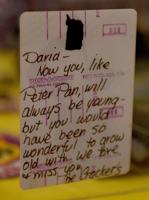 David -
Now you, like
Peter Pan, will
always be young -
but you would
have been so
wonderful to grow
old with. We love
& miss you -
The Crockers